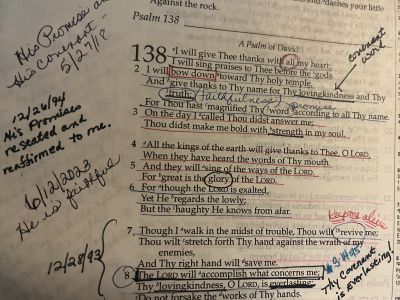 Against the rock.
dashes your little
Psalm 138
A Psalm of David.
138 ᵃI will give Thee thanks with all my heart;
I will sing praises to Thee before the ᵇgods.
2 I will bow down ᵃtoward Thy holy temple,
And ᵇgive thanks to Thy name for Thy lovingkindness and Thy
truth; (faithfulness) promise
For Thou hast ᶜmagnified Thy word according to all Thy name.
3 On the day I ᵃcalled Thou didst answer me;
Thou didst make me bold with ᵇstrength in my soul.
4 ᵃAll the kings of the earth will give thanks to Thee, O LORD,
When they have heard the words of Thy mouth.
5 And they will ᵃsing of the ways of the LORD.
For ᵇgreat is the glory of the LORD.
6 For ᵃthough the LORD is exalted,
Yet He ᵇregards the lowly;
But the ᶜhaughty He knows from afar.
7 Though I ᵃwalk in the midst of trouble, Thou wilt ᵇrevive me;
Thou wilt ᶜstretch forth Thy hand against the wrath of my
enemies,
And Thy right hand will ᵈsave me.
8 The LORD will ᵃaccomplish what concerns me;
Thy ᵇlovingkindness, O LORD, is everlasting;
Do not forsake the ᶜworks of Thy hands.
covenant
word
keep me alive
Thy Covenant
is Everlasting!
His Promise and
His Covenant -
5/27/18
12/26/94
His Promises
restated and
reaffirmed to me.
6/12/2023
He is faithful
12/28/93